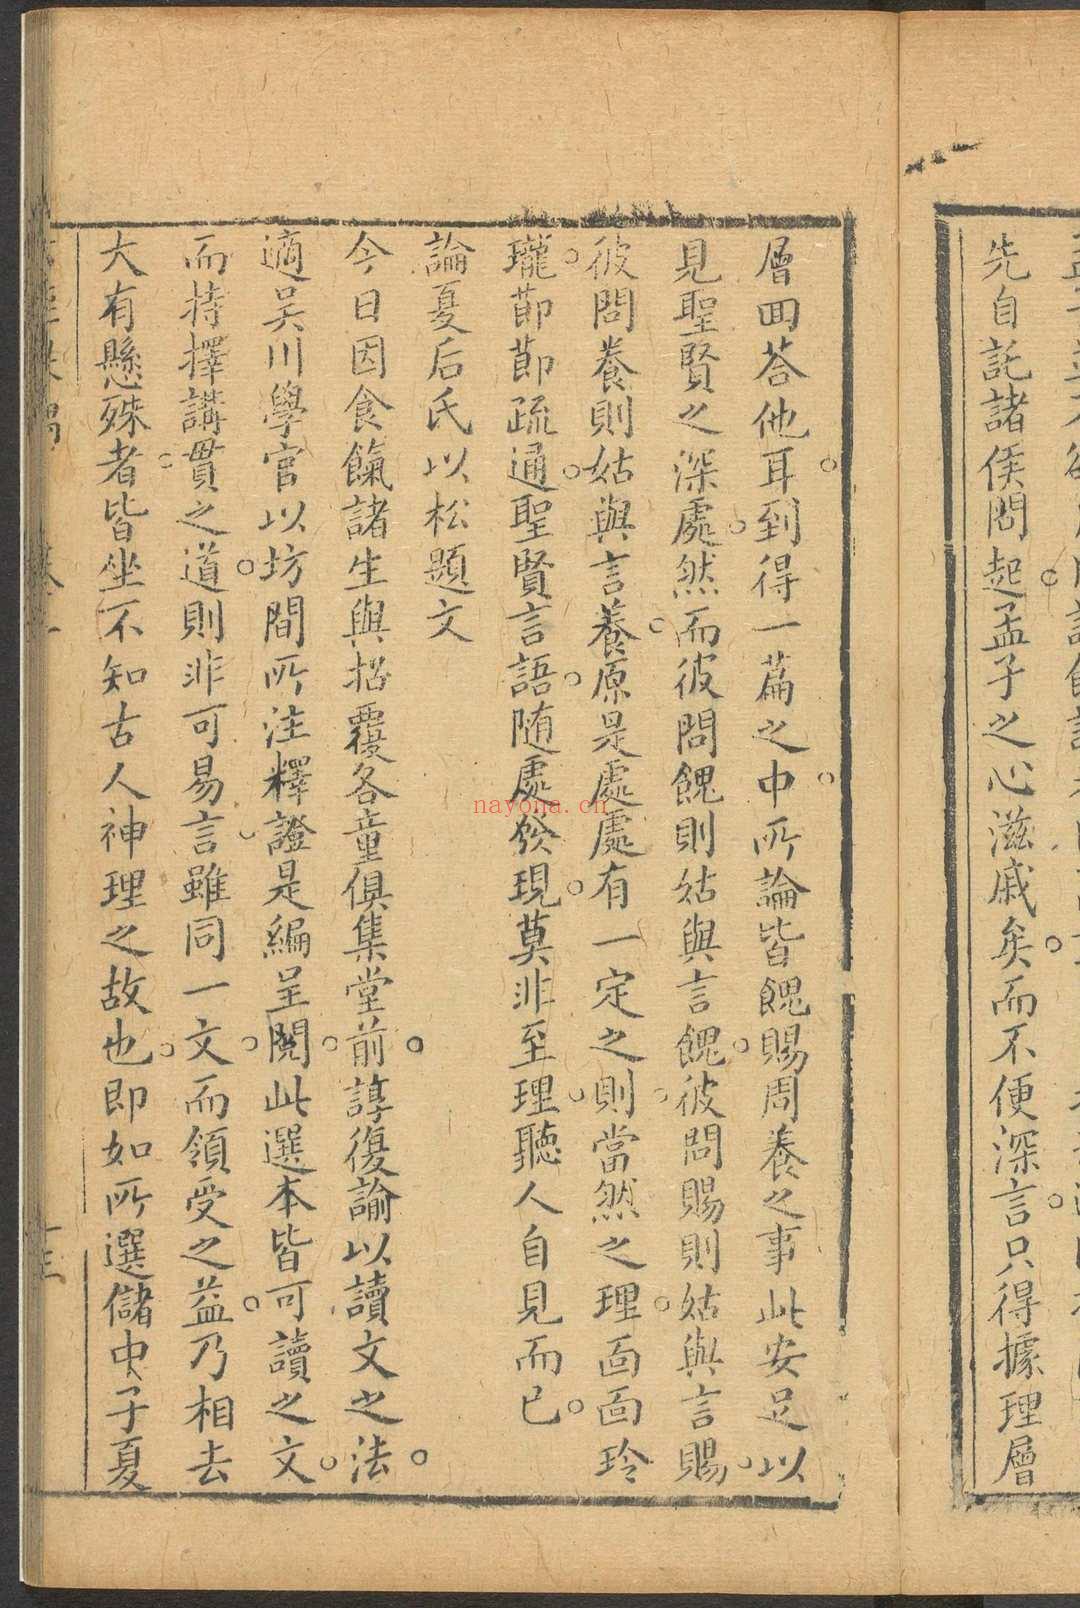 先自託諸侯問起孟子之心滋戚矣而不便深言只得據理層
層回荅他耳到得一篇之中所論皆餽賜周養之事此安足以
見聖賢之深處然而彼問餽則姑與言餽彼問賜則姑與言賜
彼問養則姑與言養原是處處有一定之則當然之理面面玲
瓏節節疏通聖賢言語随處發現莫非至理聽人自見而已
論夏后氏以松題文
今日因食餼諸生與招覆各童俱集堂前諄復諭以讀文之法
適吴川學官以坊間所注釋證是編呈閱此選本皆可讀之文
而持擇講貫之道則非可易言雖同一文而領受之益乃相去
大有懸殊者皆坐不知古人神理之故也即如所選儲中子夏
nayona.cn